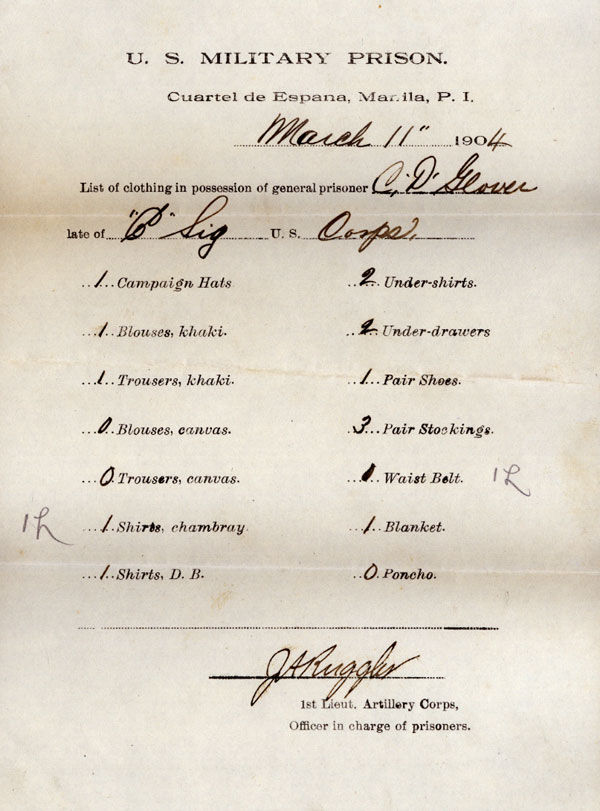 U. S. MILITARY PRISON.
Cuartel de Espana, Manila, P. I.
March 11" 1904
List of clothing in possession of general prisoner C. D. Glover
late of Sig U. S. Corps.
1 Campaign Hats
1 Blouses, khaki.
1 Trousers, khaki.
0 Blouses, canvas.
0 Trousers, canvas.
1 Shirts, chambray
1 Shirts, D. B.
2 Under-shirts.
2 Under-drawers
1 Pair Shoes.
3 Pair Stockings.
Waist Belt.
1 Blanket.
0 Poncho.
J A Ruggles
1st Lieut. Artillery Corps,
Officer in charge of prisoners.